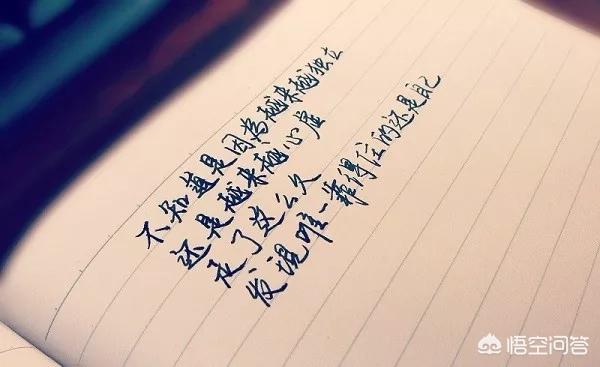 不知道是因为越来越独立
还是越来越心虚
走了这么久
发现唯一靠得住的还是自己
悟空问答